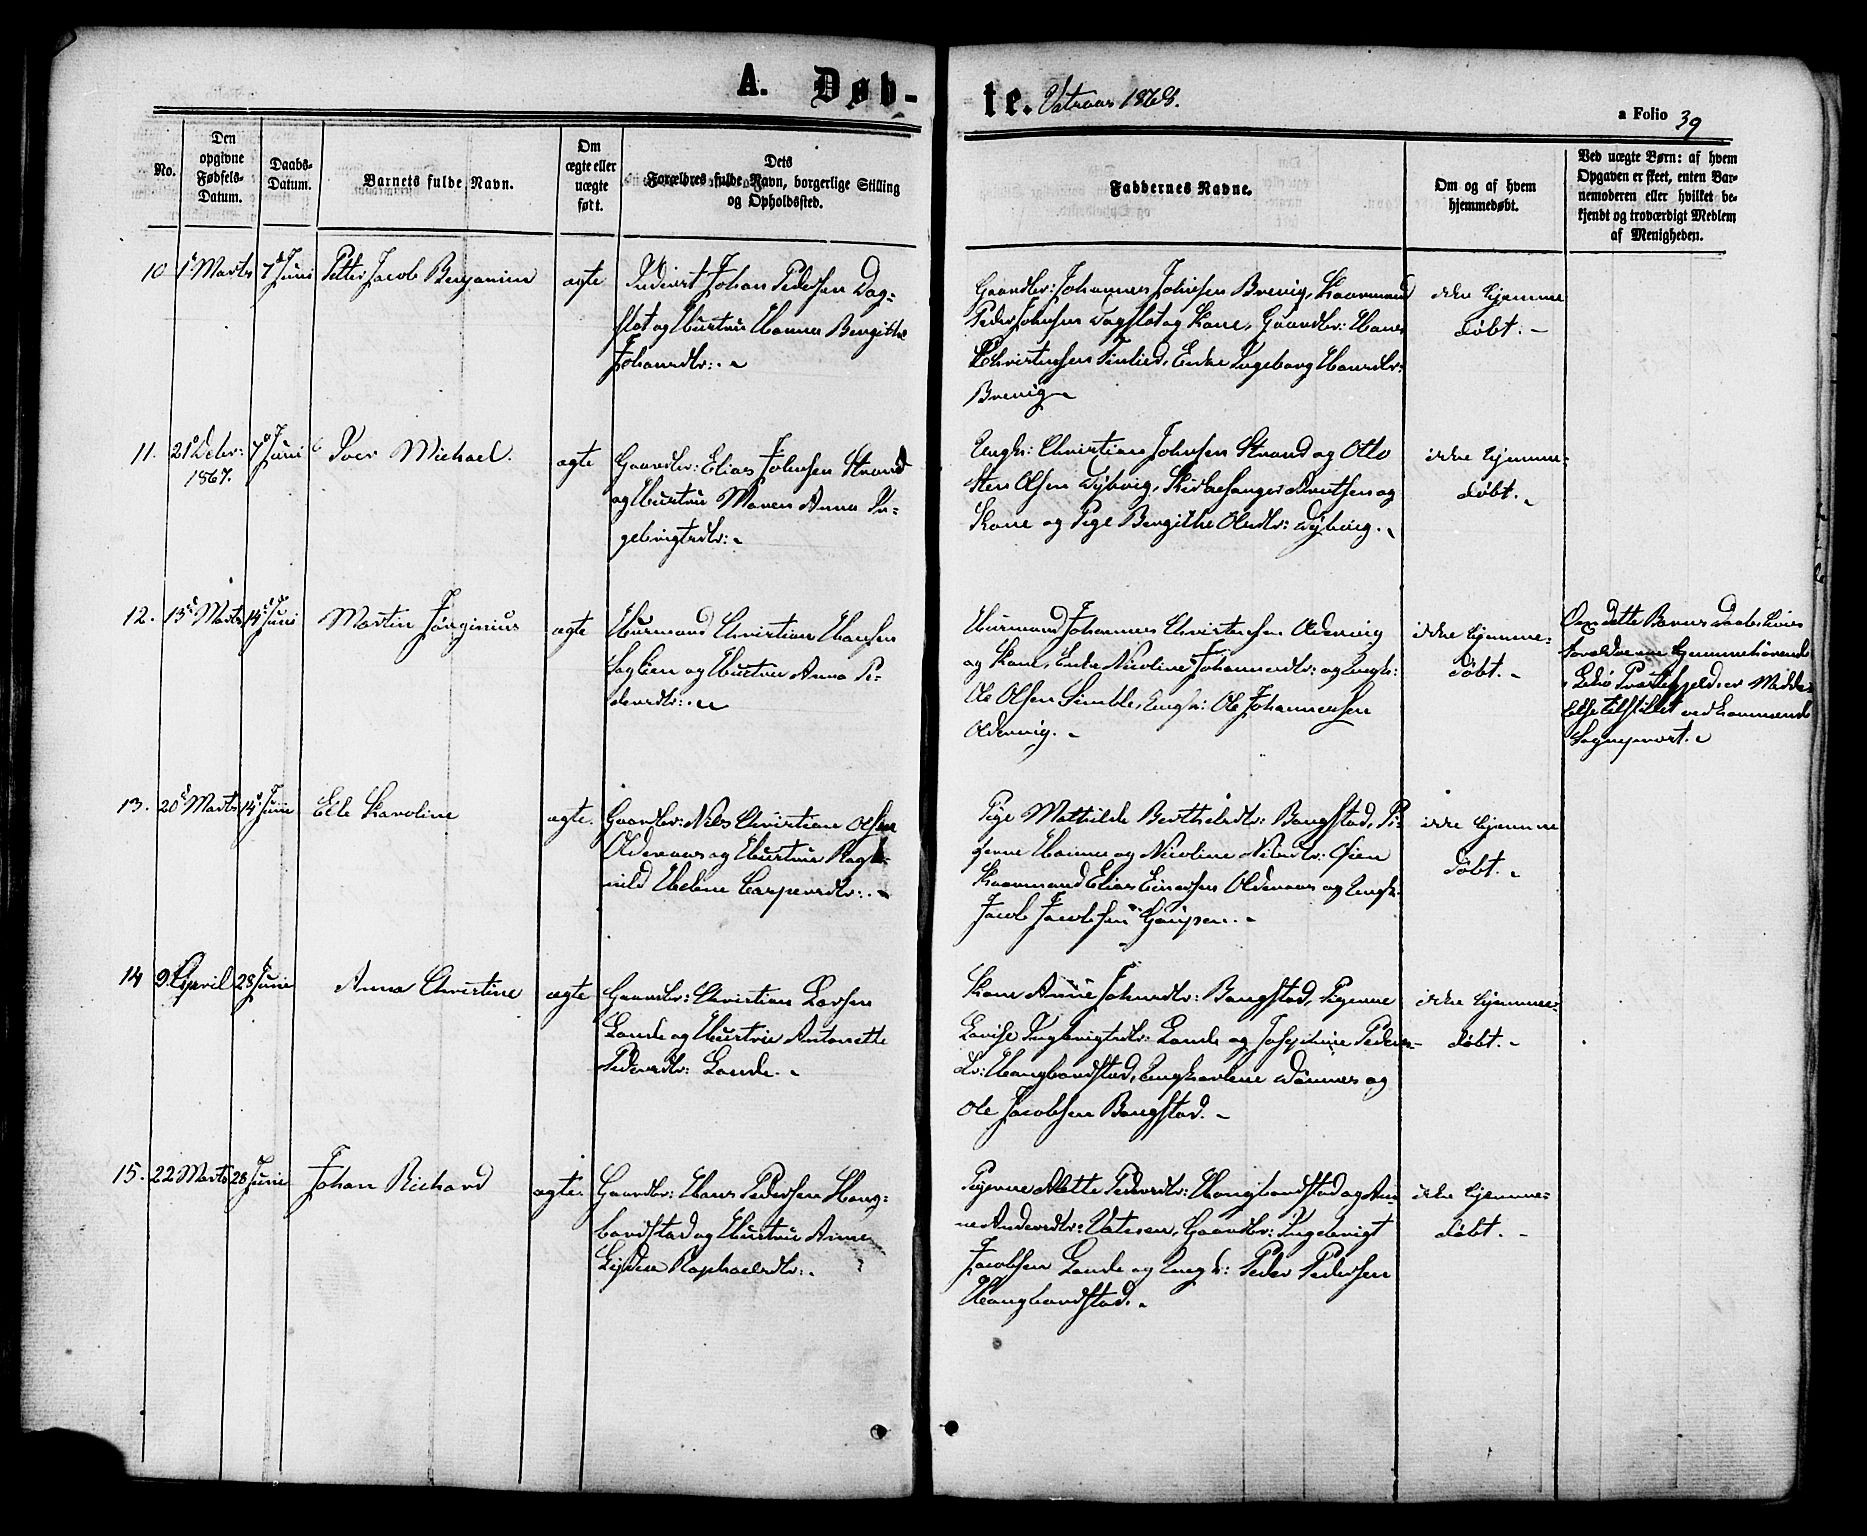 A. Døb-
te. Vatnaas 1868.
a Folio 39
No.
Den opgivne Fødsels-Datum.
Daabs-Datum.
Barnets fulde Navn.
Om ægte eller uægte født.
Dets Forældres fulde Navn, borgerlige Stilling og Opholdssted.
Faddernes Navne.
Om og af hvem hjemmedøbt.
Ved uægte Børn: af hvem Opgaven er skeet, enten Barnemoderen eller hvilket bekjendt og troværdigt Medlem af Menigheden.
10 1 Marts 7 Juni Petter Jacob Benjamin ægte
Inderst Johan Pedersen Dag-
slot og Hustru Hanna Bergithe
Johansdtr: . „
Gaardbr: Johannes Johnsen Brevig, Kaarmand
Peder Johnsen Dagslot og Kone, Gaardbr: Hans
Christensen Finlied, Enke Ingeborg Hansdtr:
Brevig „
ikke hjemme
døbt. –
11. 21 Decbr: 1867. 7 Juni Iver Michael. ægte
Gaardbr: Elias Johnsen Strand
og Hustru Maren Anna In-
gebrigtsdtr: „
Ungk: Christian Johnsen Strand og Otto
Sten Olsen Dybvig, Kirkesanger Knutsen og
Kone og Pige Bergithe Olsdtr: Dybvig. „
ikke hjemme-
døbt. „
12. 13 Marts 14 Juni Martin Jørginius ægte
Husmand Christian Hansen
Saglien og Hustru Anna Pe-
dersdtr: . „
Husmand Johannes Christensen Oldervig
og Kone, Enke Nicoline Johannesdtr: og Ungk:
Ole Olsen Simble, Ungk: Ole Johannessen
Oldervig. „
ikke hjemme-
døbt. „
Om dette Barns Daab, hvis
Forældre ere hjemmehørende
i Præstegjeld, er Medde-
lelse tilstillet vedkommende
Sognepræst. „
13. 20 Marts 14 Juni Ele Karoline ægte.
Gaardbr: Nils Christian Olsen
Oldernæs og Hustru Rag-
nild Helene Caspersdtr: . „
Pige Mathilde Berthelsdtr: Bangstad, Pi-
gerne Hanna og Nicoline Nilsdtr: Øien
Kaarmand Elias Einersen Oldernæs og Ungk.
Jacob Jacobsen Gaupen. „
ikke hjemme
døbt. „
14 9 April 28 Juni Anna Christine ægte
Gaardbr: Christian Larsen
Lande og Hustru Antonette
Pedersdtr: Lande. „
Kone Anne Johnsdtr: Bangstad, Pigerne
Lovise Ingebrigtsdtr: Lande og Josephine Peders-
dtr: Haugbandstad, Ungkarlene Dønnes og
Ole Jacobsen Bangstad. „
ikke hjemme-
døbt. „
15. 22 Marts 28 Juni Johan Richard ægte.
Gaardbr: Hans Pedersen Haug-
bandstad og Hustru Anne
Raphaelsdtr: .
Pigerne Mette Pedersdtr: Haugbandstad og An-
ne Andersdtr: Vatnan, Gaardbr: Ingebrigt
Jacobsen Lande og Ungk: Peder Pedersen
Haugbandstad. „
ikke hjemme-
døbt. „